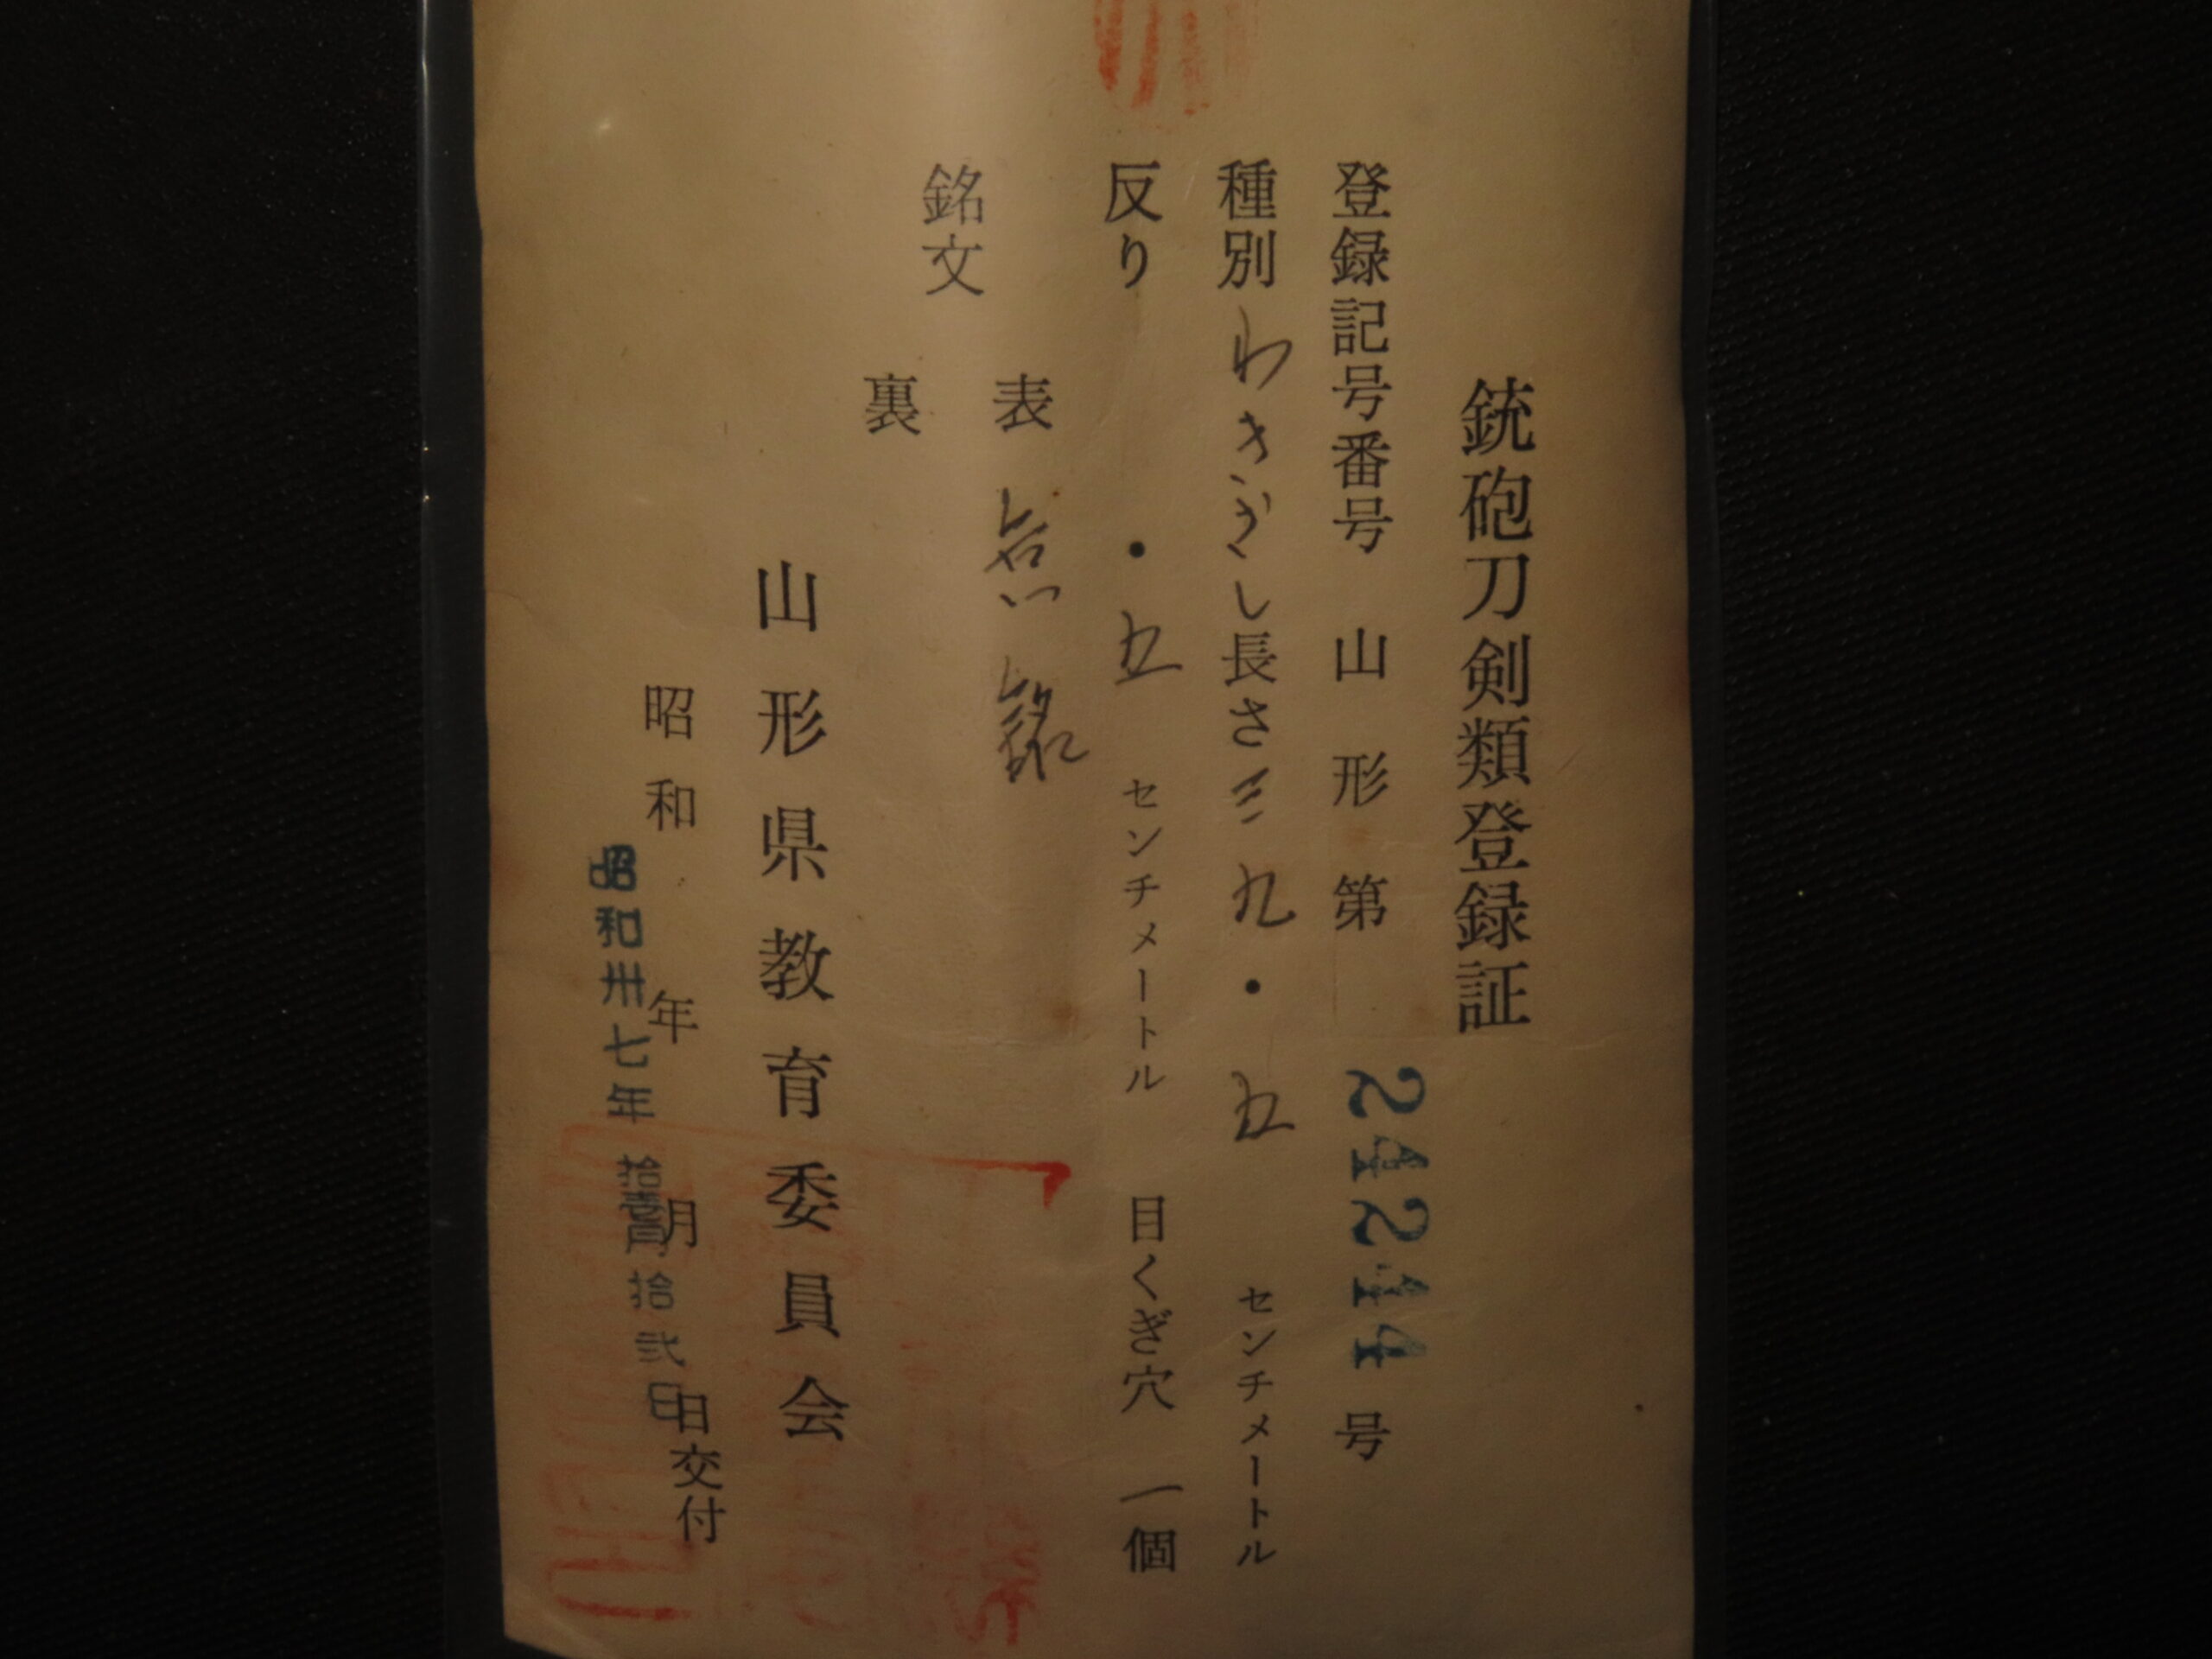 銃砲刀剣類登録証
登録記号番号 山形第 24244 号
種別 わきざし 長さ 三九・五 センチメートル
反り ・五 センチメートル 目くぎ穴 一個
銘文
表 無銘
裏
山形県教育委員会
昭和 年 月 日交付
昭和卅七年拾壹月拾弐日